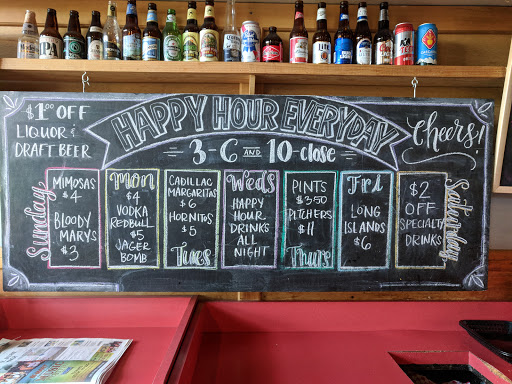 $1.00 OFF
LIQUOR &
DRAFT BEER
HAPPY HOUR EVERYDAY
3-6 AND 10-close
Cheers!
Sunday
MIMOSAS
$4
BLOODY
MARYS
$3
Mon
$4
VODKA
REDBULL
$5
JAGER
BOMB
CADILLAC
MARGARITAS
$6
HORNITOS
$5
Tues
Weds
HAPPY
HOUR
DRINKS
ALL
NIGHT
PINTS
$3.50
PITCHERS
$11
Thurs
Fri
LONG
ISLANDS
$6
Saturday
$2
OFF
SPECIALTY
DRINKS
IPA